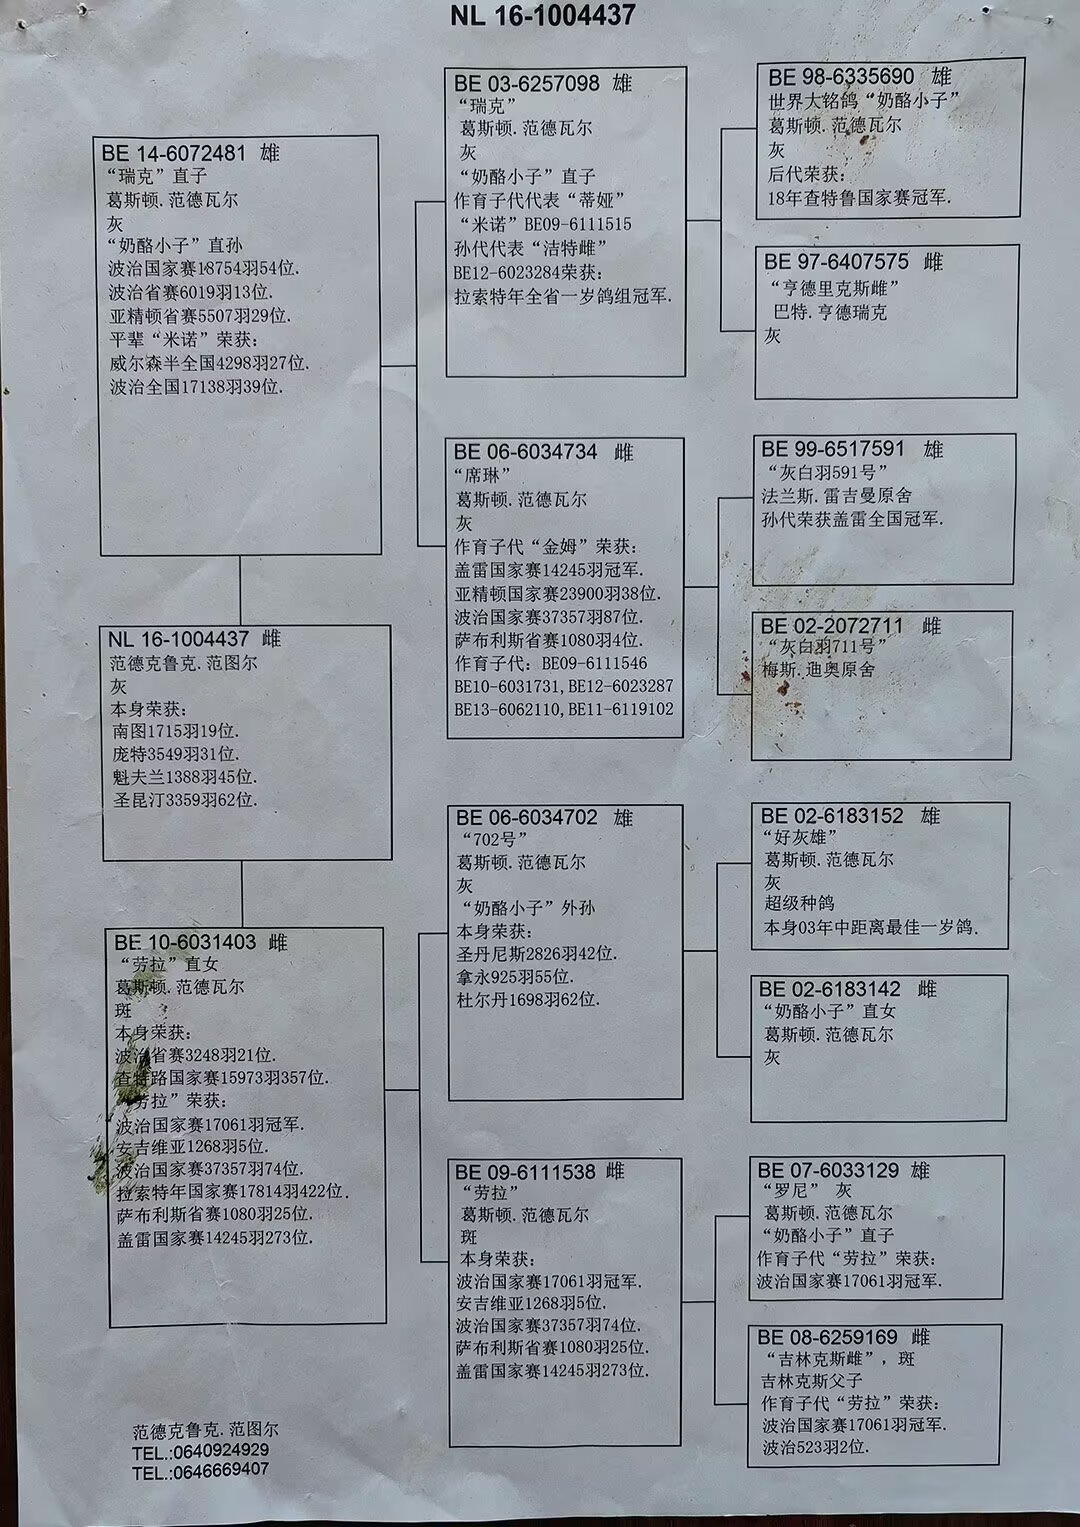 NL 16-1004437
BE 14-6072481 雄
“瑞克”直子
葛斯顿.范德瓦尔
灰
“奶酪小子”直孙
波治国家赛18754羽54位.
波治省赛6019羽13位.
亚精顿省赛5507羽29位.
平辈“米诺”荣获:
威尔森半全国4298羽27位.
波治全国17138羽39位.
NL 16-1004437 雌
范德克鲁克.范图尔
灰
本身荣获:
南图1715羽19位.
庞特3549羽31位.
魁夫兰1388羽45位.
圣昆汀3359羽62位.
BE 10-6031403 雌
“劳拉”直女
葛斯顿.范德瓦尔
斑
本身荣获:
波治省赛3248羽21位.
查特路国家赛15973羽357位.
“劳拉”荣获:
波治国家赛17061羽冠军.
安吉维亚1268羽5位.
波治国家赛37357羽74位.
拉索特年国家赛17814羽422位.
萨布利斯省赛1080羽25位.
盖雷国家赛14245羽273位.
BE 03-6257098 雄
“瑞克”
葛斯顿.范德瓦尔
灰
“奶酪小子”直子
作育子代代表“蒂娅”
“米诺”BE09-6111515
孙代代表“洁特雌”
BE12-6023284荣获:
拉索特年全省一岁鸽组冠军.
BE 06-6034734 雌
“席琳”
葛斯顿.范德瓦尔
灰
作育子代“金姆”荣获:
盖雷国家赛14245羽冠军.
亚精顿国家赛23900羽38位.
波治国家赛37357羽87位.
萨布利斯省赛1080羽4位.
作育子代: BE09-6111546
BE10-6031731,BE12-6023287
BE13-6062110,BE11-6119102
BE 06-6034702 雄
“702号”
葛斯顿.范德瓦尔
灰
“奶酪小子”外孙
本身荣获:
圣丹尼斯2826羽42位.
拿永925羽55位.
杜尔丹1698羽62位.
BE 09-6111538 雌
“劳拉”
葛斯顿.范德瓦尔
斑
本身荣获:
波治国家赛17061羽冠军.
安吉维亚1268羽5位.
波治国家赛37357羽74位.
萨布利斯省赛1080羽25位.
盖雷国家赛14245羽273位.
BE 98-6335690 雄
世界大铭鸽“奶酪小子”
葛斯顿.范德瓦尔
灰
后代荣获:
18年查特鲁国家赛冠军.
BE 97-6407575 雌
“亨德里克斯雌”
巴特.亨德瑞克
灰
BE 99-6517591 雄
“灰白羽591号”
法兰斯.雷吉曼原舍
孙代荣获盖雷全国冠军.
BE 02-2072711 雌
“灰白羽711号”
梅斯.迪奥原舍
BE 02-6183152 雄
“好灰雄”
葛斯顿.范德瓦尔
灰
超级种鸽
本身03年中距离最佳一岁鸽.
BE 02-6183142 雌
“奶酪小子”直女
葛斯顿.范德瓦尔
灰
BE 07-6033129 雄
“罗尼” 灰
葛斯顿.范德瓦尔
“奶酪小子”直子
作育子代“劳拉”荣获:
波治国家赛17061羽冠军.
BE 08-6259169 雌
“吉林克斯雌”,斑
吉林克斯父子
作育子代“劳拉”荣获:
波治国家赛17061羽冠军.
波治523羽2位.
范德克鲁克.范图尔
TEL.:0640924929
TEL.:0646669407